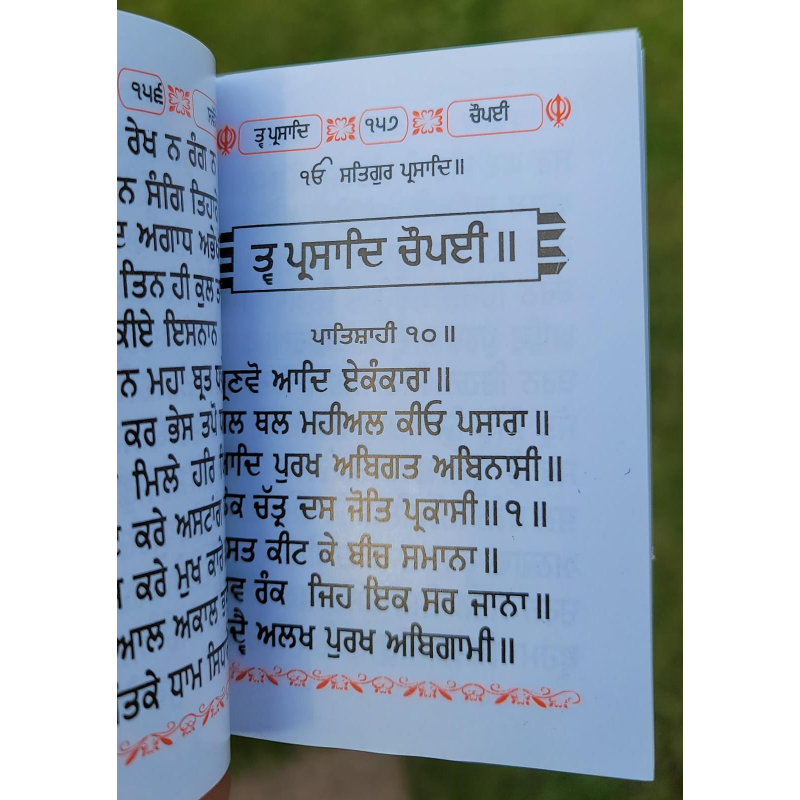 ੧੫੬
ਰੇਖ ਨ ਰੰਗ ਨ
ਨ ਸੰਗਿ ਤਿਹਾਰੇ
ਅਗਾਧ ਅਭੇ
ਤਿਨ ਹੀ ਕੁਲ
ਕੀਏ ਇਸਨਾਨ
ਨ ਮਹਾ ਬ੍ਰਤ
ਕਰ ਭੇਸ ਤਪੋ
ਮਿਲੇ ਹਰਿ
ਕਰੇ ਅਸਟਾਂਗ
ਕਰੇ ਮੁਖ ਕਾਰੇ
ਆਲ ਅਕਾਲ
ਤਕੇ ਧਾਮ ਸਿਧ
ਤ੍ਵ ਪ੍ਰਸਾਦਿ ੧੫੭ ਚੌਪਈ
ੴ ਸਤਿਗੁਰ ਪ੍ਰਸਾਦਿ॥
ਤ੍ਵ ਪ੍ਰਸਾਦਿ ਚੌਪਈ॥
ਪਾਤਿਸ਼ਾਹੀ ੧੦॥
ਪ੍ਰਣਵੋ ਆਦਿ ਏਕੰਕਾਰਾ॥
ਜਲ ਥਲ ਮਹੀਅਲ ਕੀਓ ਪਸਾਰਾ॥
ਆਦਿ ਪੁਰਖ ਅਬਿਗਤ ਅਬਿਨਾਸੀ॥
ਲੋਕ ਚੱਤ੍ਰ ਦਸ ਜੋਤਿ ਪ੍ਰਕਾਸੀ॥੧॥
ਸਤ ਕੀਟ ਕੇ ਬੀਚ ਸਮਾਨਾ॥
ਰਾਵ ਰੰਕ ਜਿਹ ਇਕ ਸਰ ਜਾਨਾ॥
ਅਲਖ ਪੁਰਖ ਅਬਿਗਾਮੀ॥